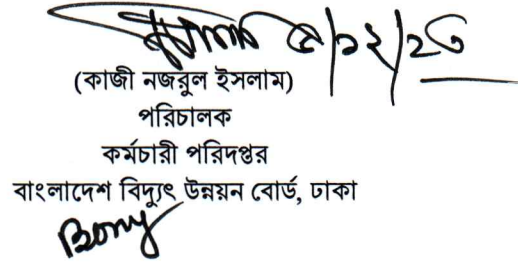 (কাজী নজরুল ইসলাম)
পরিচালক
কর্মচারী পরিদপ্তর
বাংলাদেশ বিদ্যুৎ উন্নয়ন বোর্ড, ঢাকা
Bony